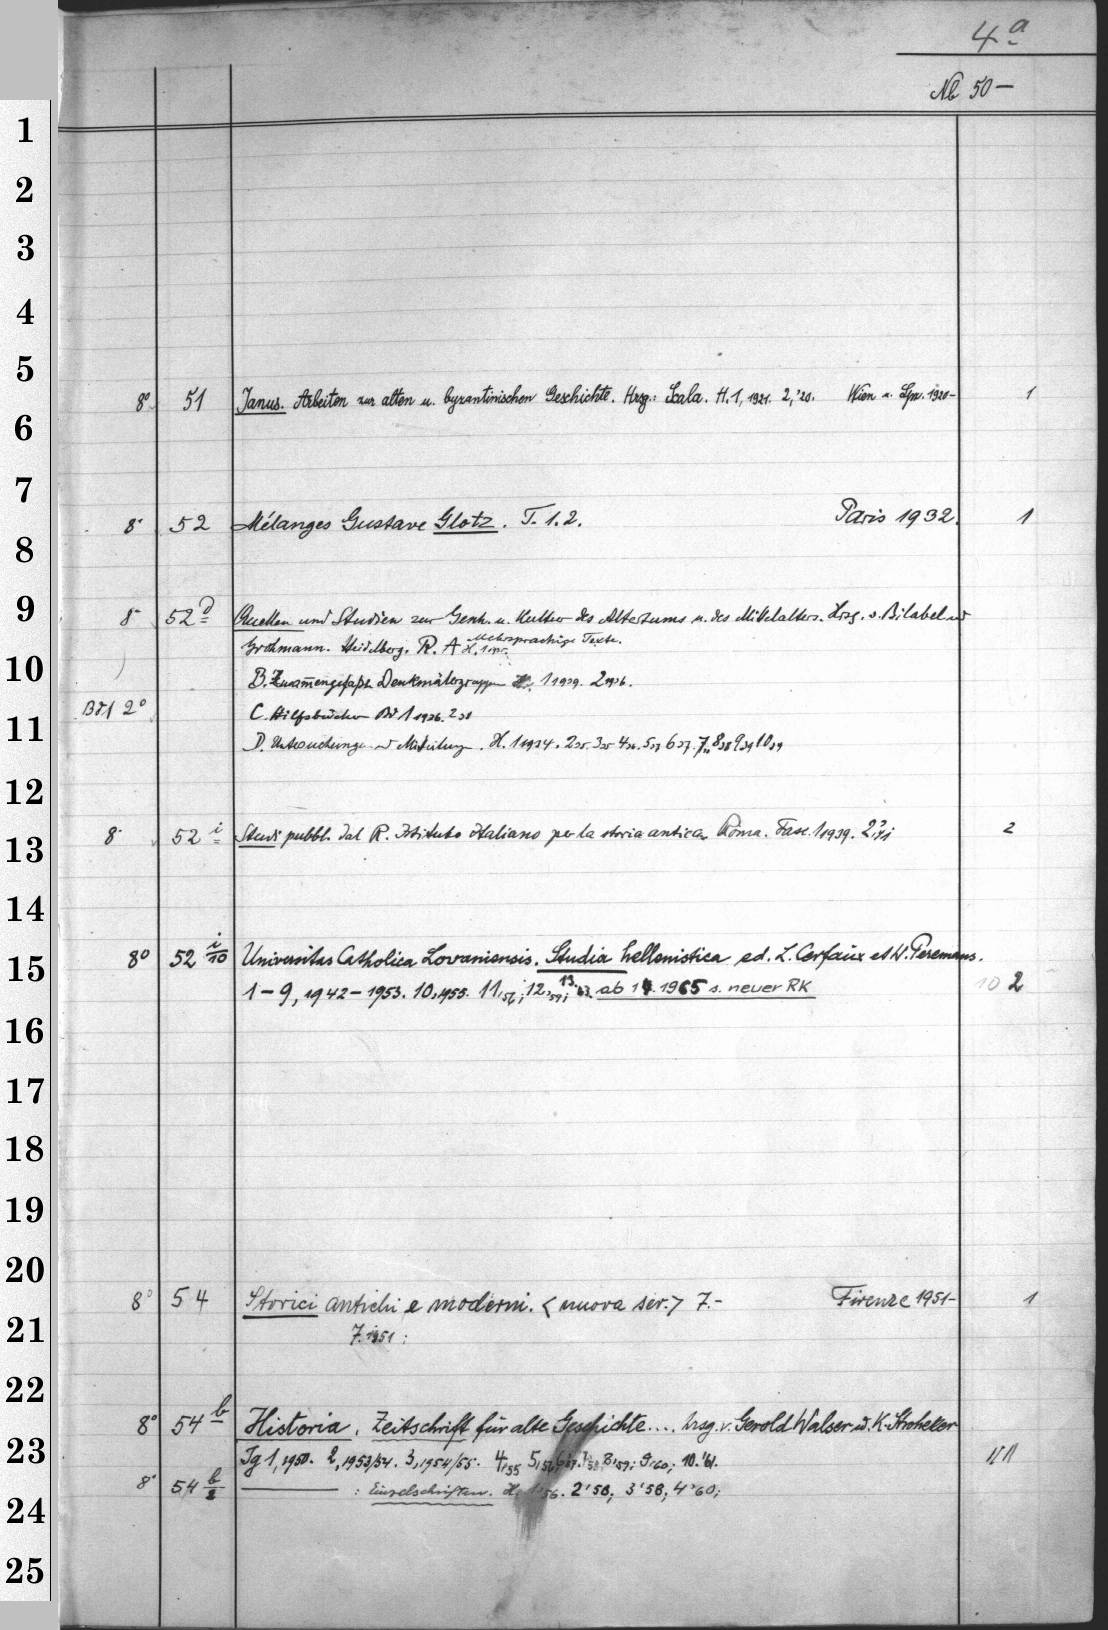 4ª
Nb 50 —
1
2
3
4
5
8° 51 Janus. Arbeiten zur alten u. byzantinischen Geschichte. Hrsg.: Scala. H. 1, 1921. 2, '20. Wien u. Lpz. 1920- 1
6
7
8° 52 Mélanges Gustave Glotz. T. 1.2. Paris 1932. 1
8
9
8° 52 d Quellen und Studien zur Gesch. u. Kultur des Altertums u. des Mittelalters. Hrsg. v. Bilabel und
Grohmann. Heidelberg. R. A Mehrsprachige Texte.
10
B. Zusammengefaßte Denkmälergruppen H. 1 1929. 2 1926.
Bd 1 2° C. Hilfsbücher Bd 1 1926.
11
D. Untersuchungen und Mitteilung. H. 1 1934. 2 35. 3 35 4 36. 5 37 6 37. 7 8 38 9 39 10 39
12
8° 52 i Studi pubbl. dal R. Istituto Italiano per la storia antica. Roma. Fasc. 1 1939. 2 2
13
14
8° 52 i/10 Universitas Catholica Lovaniensis. Studia hellenistica ed. L. Cerfaux et W. Peremans.
15
1-9, 1942-1953. 10, 1955. 11, '56; 12, '59; 13, '63 ab 14. 1965 s. neuer RK 10 2
16
17
18
19
20
8° 54 Storici antichi e moderni. <nuova ser.> 7.- Firenze 1951- 1
21
7. 1951:
22
8° 54 b Historia. Zeitschrift für alte Geschichte... hrsg. v. Gerold Walser u. K. Stroheker
23
Jg 1, 1950. 2, 1953/54. 3, 1954/55. 4, '55 5, '56; 8, '59; 9, '60; 10. '61.
8° 54 b/2 : Einzelschriften. H. 1 '56. 2 '58; 3 '58; 4 '60;
24
25